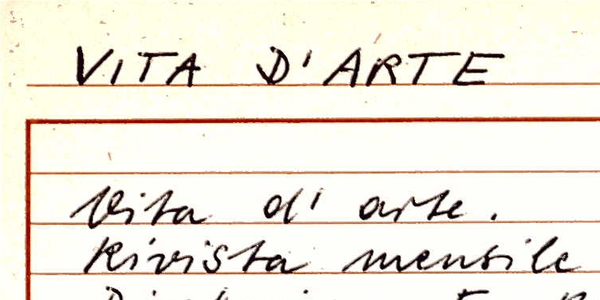 VITA D'ARTE
Vita d'arte.
Rivista mensile